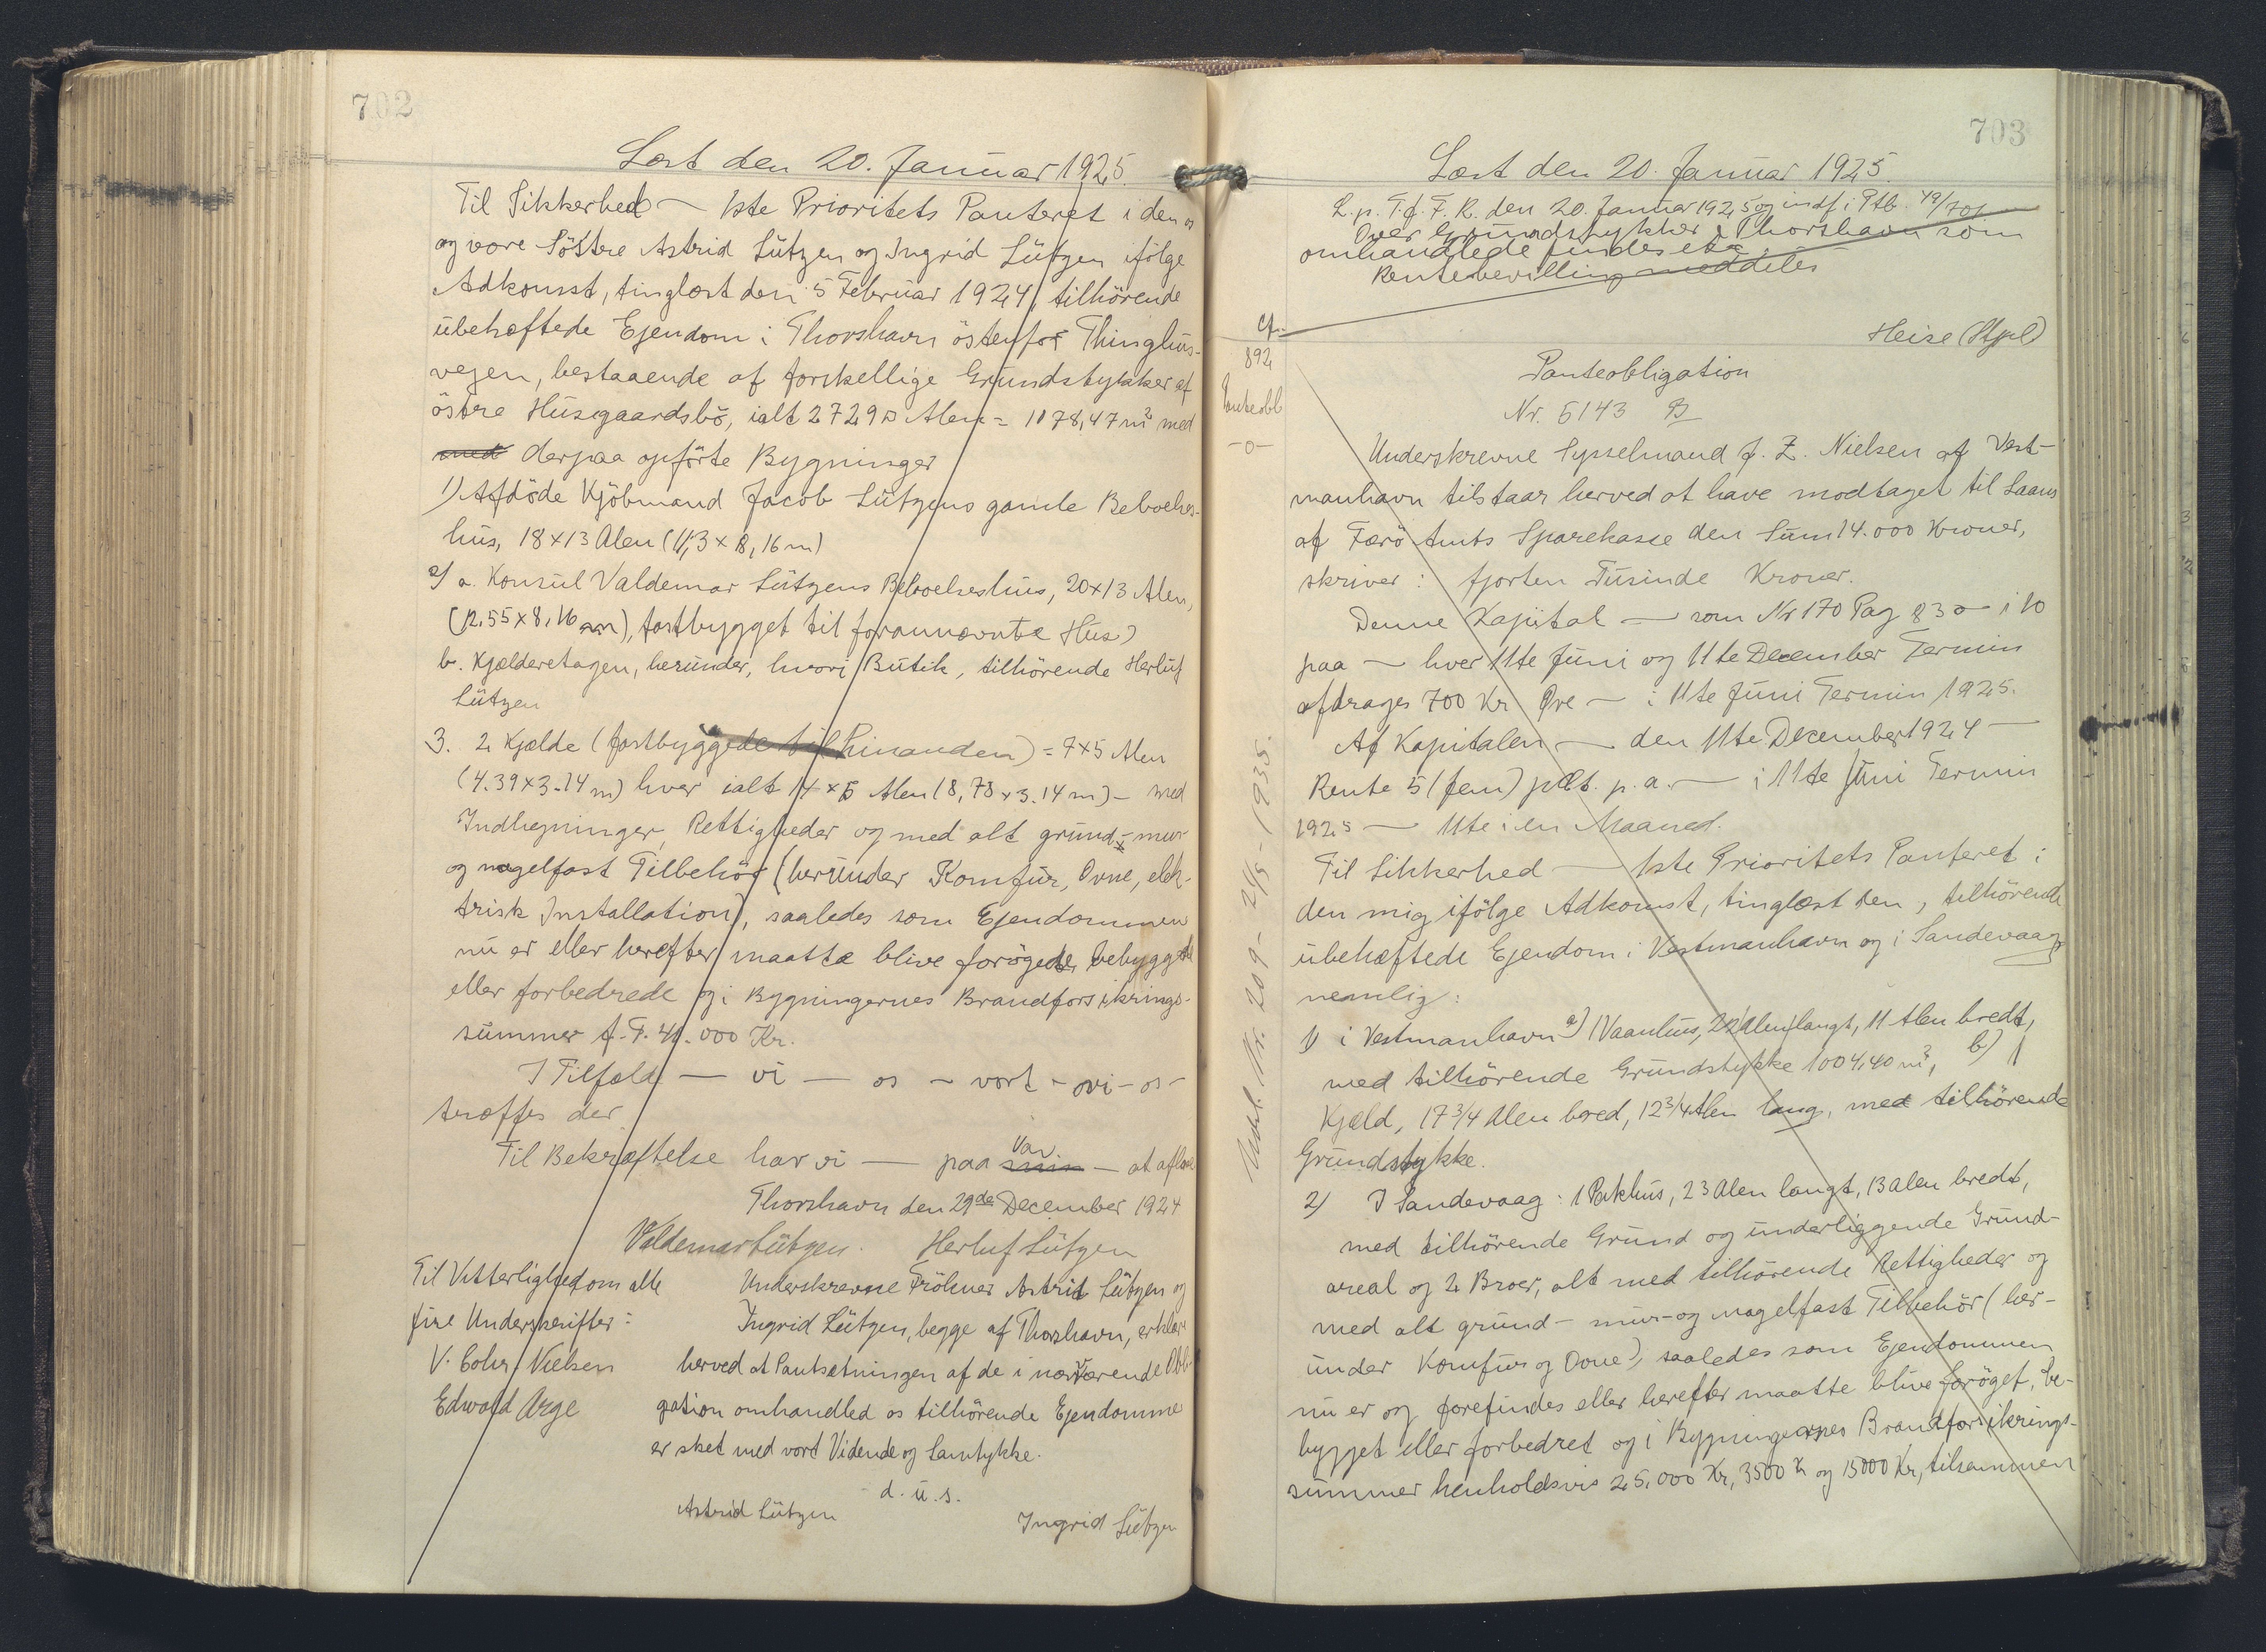 702
Læst den 20. Januar 1925.
Til Sikkerhed — 1ste Prioritets Panteret i den os
og vore Söstre Astrid Lützen og Ingrid Lützen ifölge
Adkomst, tinglæst den 5 Februar 1924, tilhörende
ubehæftede Ejendom i Thorshavn östenfor Thinghus-
vejen, bestaaende af forskellige Grundstykker af
östre Husegaardsbö, ialt 2729 □ Alen = 1078,47 m² med
med derpaa opförte Bygninger
1) Afdöde Kjöbmand Jacob Lützens gamle Beboelses-
hus, 18 x 13 Alen (11,3 x 8,16 m)
2) a. Konsul Valdemar Lützens Beboelseshus, 20 x 13 Alen,
(12.55 x 8,16 m), fastbygget til forannævnte Hus)
b. Kjælderetagen, herunder, hvori Butik, tilhörende Herluf
Lützen
3. 2 Kjælde (fastbyggede til hinanden) = 7 x 5 Alen
(4.39 x 3.14 m) hver ialt 14 x 5 Alen (8,78 x 3.14 m) - med
Indhegninger, Rettigheder og med alt grund- mur-
og nagelfast Tilbehör (herunder Komfur, Ovne, elek-
trisk Installation), saaledes som Ejendommen
nu er eller herefter maatte blive forögede, bebyggede
eller forbedrede og i Bygningernes Brandforsikrings-
summer f. T. 41.000 Kr.
I Tilfælde — vi — os — vort - vi - os -
træffes der
Til Bekræftelse har vi — paa min vor — at aflæse
Thorshavn den 29de December 1924
Valdemar Lützen. Herluf Lützen
Til Vitterlighed om alle
fire Underskrifter:
V. Cohr Nielsen
Edward Arge
Underskrevne Frökner Astrid Lützen og
Ingrid Lützen, begge af Thorshavn, erklære
herved at Pantsætningen af de i nærværende Obli-
gation omhandled os tilhörende Ejendomme
er sket med vort Vidende og Samtykke.
d. u. s.
Astrid Lützen Ingrid Lützen
703
Læst den 20. Januar 1925.
L. p. T. f. F. R. den 20. Januar 1925 og indf. i Ptb. 49/701
Over Grundstykker i Thorshavn som
omhandlede findes
Rentebevilling meddeles
Heise (Stpl)
cf.
892
Panteobl
-o-
Panteobligation
Nr. 5143 B
Underskrevne Sysselmand J. Z. Nielsen af Vest-
manhavn tilstaar herved at have modtaget til Laans
af Færö Amts Sparekasse den Sum 14.000 Kroner,
skriver: fjorten Tusinde Kroner.
Denne Kapital — som Nr 170 Pag 830 — i 10
paa — hver 11te Juni og 11te December Termin
afdrages 700 Kr Øre — i 11te Juni Termin 1925.
Af Kapitalen — den 11te December 1924 —
Rente 5 (fem) pCt. p. a. — i 11te Juni Termin
1925 — 11te i en Maaned.
Til Sikkerhed — 1ste Prioritets Panteret i
den mig ifölge Adkomst, tinglæst den , tilhörende
ubehæftede Ejendom i Vestmanhavn og i Sandevaag
nemlig:
1) i Vestmanhavn a) 1 Vaanhus, 22 Alen langt, 11 Alen bredt,
med tilhörende Grundstykke 1004,40 m², b) 1
Kjæld, 17 3/4 Alen bred, 12 3/4 Alen lang, med tilhörende
Grundstykke.
2) I Sandevaag: 1 Pakhus, 23 Alen langt, 13 Alen bredt,
med tilhörende Grund og underliggende Grund-
areal og 2 Broer, alt med tilhörende Rettigheder og
med alt grund- mur- og nagelfast Tilbehör (her-
under Komfur og Ovne), saaledes som Ejendommen
nu er og forefindes eller herefter maatte blive foröget, be-
bygget eller forbedret og i Bygningernes Brandforsikrings-
summer henholdsvis 25.000 Kr, 3500 Kr og 15000 Kr, tilsammen
Udsl. Nr. 209 - 24/5 - 1935.